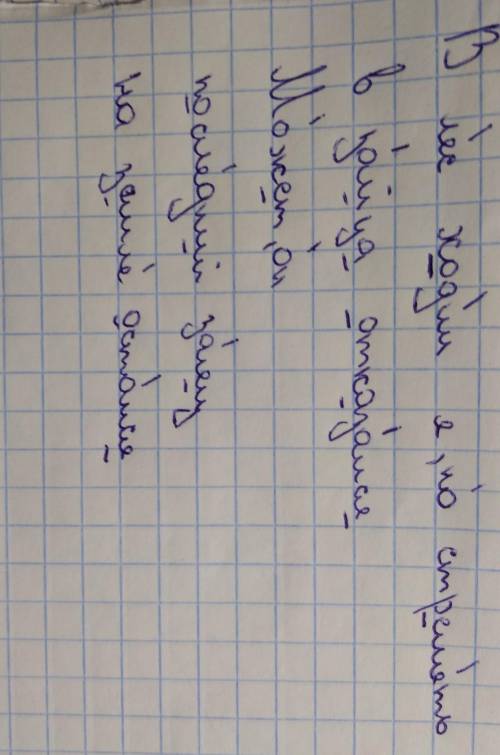 В лес ходил я, но стрелять
в зайца отказался
Может, он
последний заяц
на земле остался